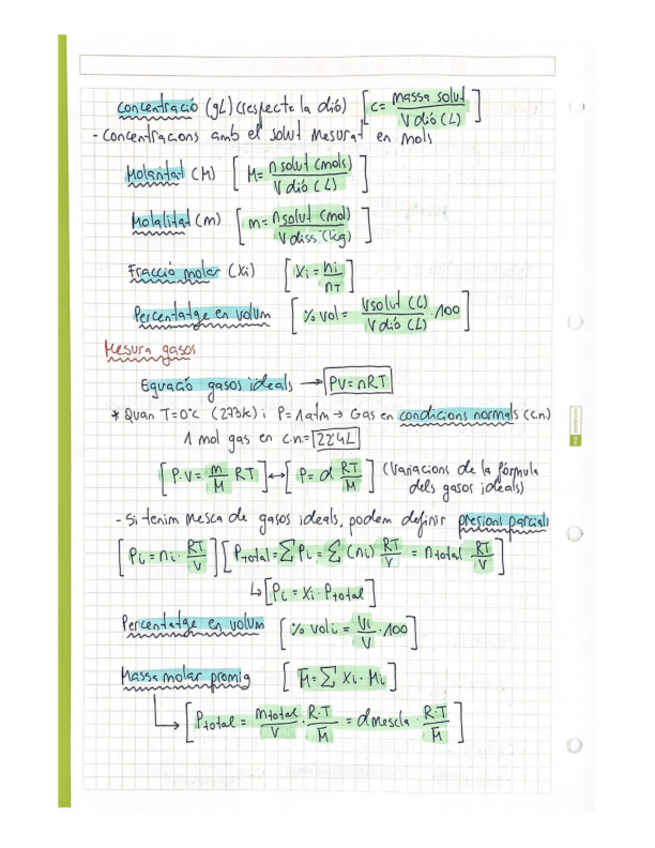 Concentració (gL) (respecte la dió) [c= massa solut / V dió (L)]
- Concentracions amb el solut mesurat en mols
Molaritat (M) [M= n solut (mols) / V dió (L)]
Molalitat (m) [m= n solut (mol) / V diss (kg)]
Fracció molar (Xi) [Xi = ni / nT]
Percentatge en volum [% vol = V solut (L) / V dió (L) · 100]
Mesura gasos
Equació gasos ideals → PV=nRT
* Quan T=0°C (273k) i P=1atm → Gas en condicions normals (c.n)
1 mol gas en c.n.= 22'4L
[P·V= m/M RT] ↔ [P= d RT/M] (Variacions de la fórmula
dels gasos ideals)
- Si tenim mescla de gasos ideals, podem definir presions parcials
[Pi = ni · RT/V] [Ptotal = Σ Pi = Σ (ni) RT/V = ntotal RT/V]
↳ [Pi = Xi · Ptotal]
Percentatge en volum [% vol i = Vi/V · 100]
Massa molar promig [M̄ = Σ Xi · Mi]
↳ [Ptotal = mtotal/V · R·T/M̄ = d mescla · R·T/M̄]